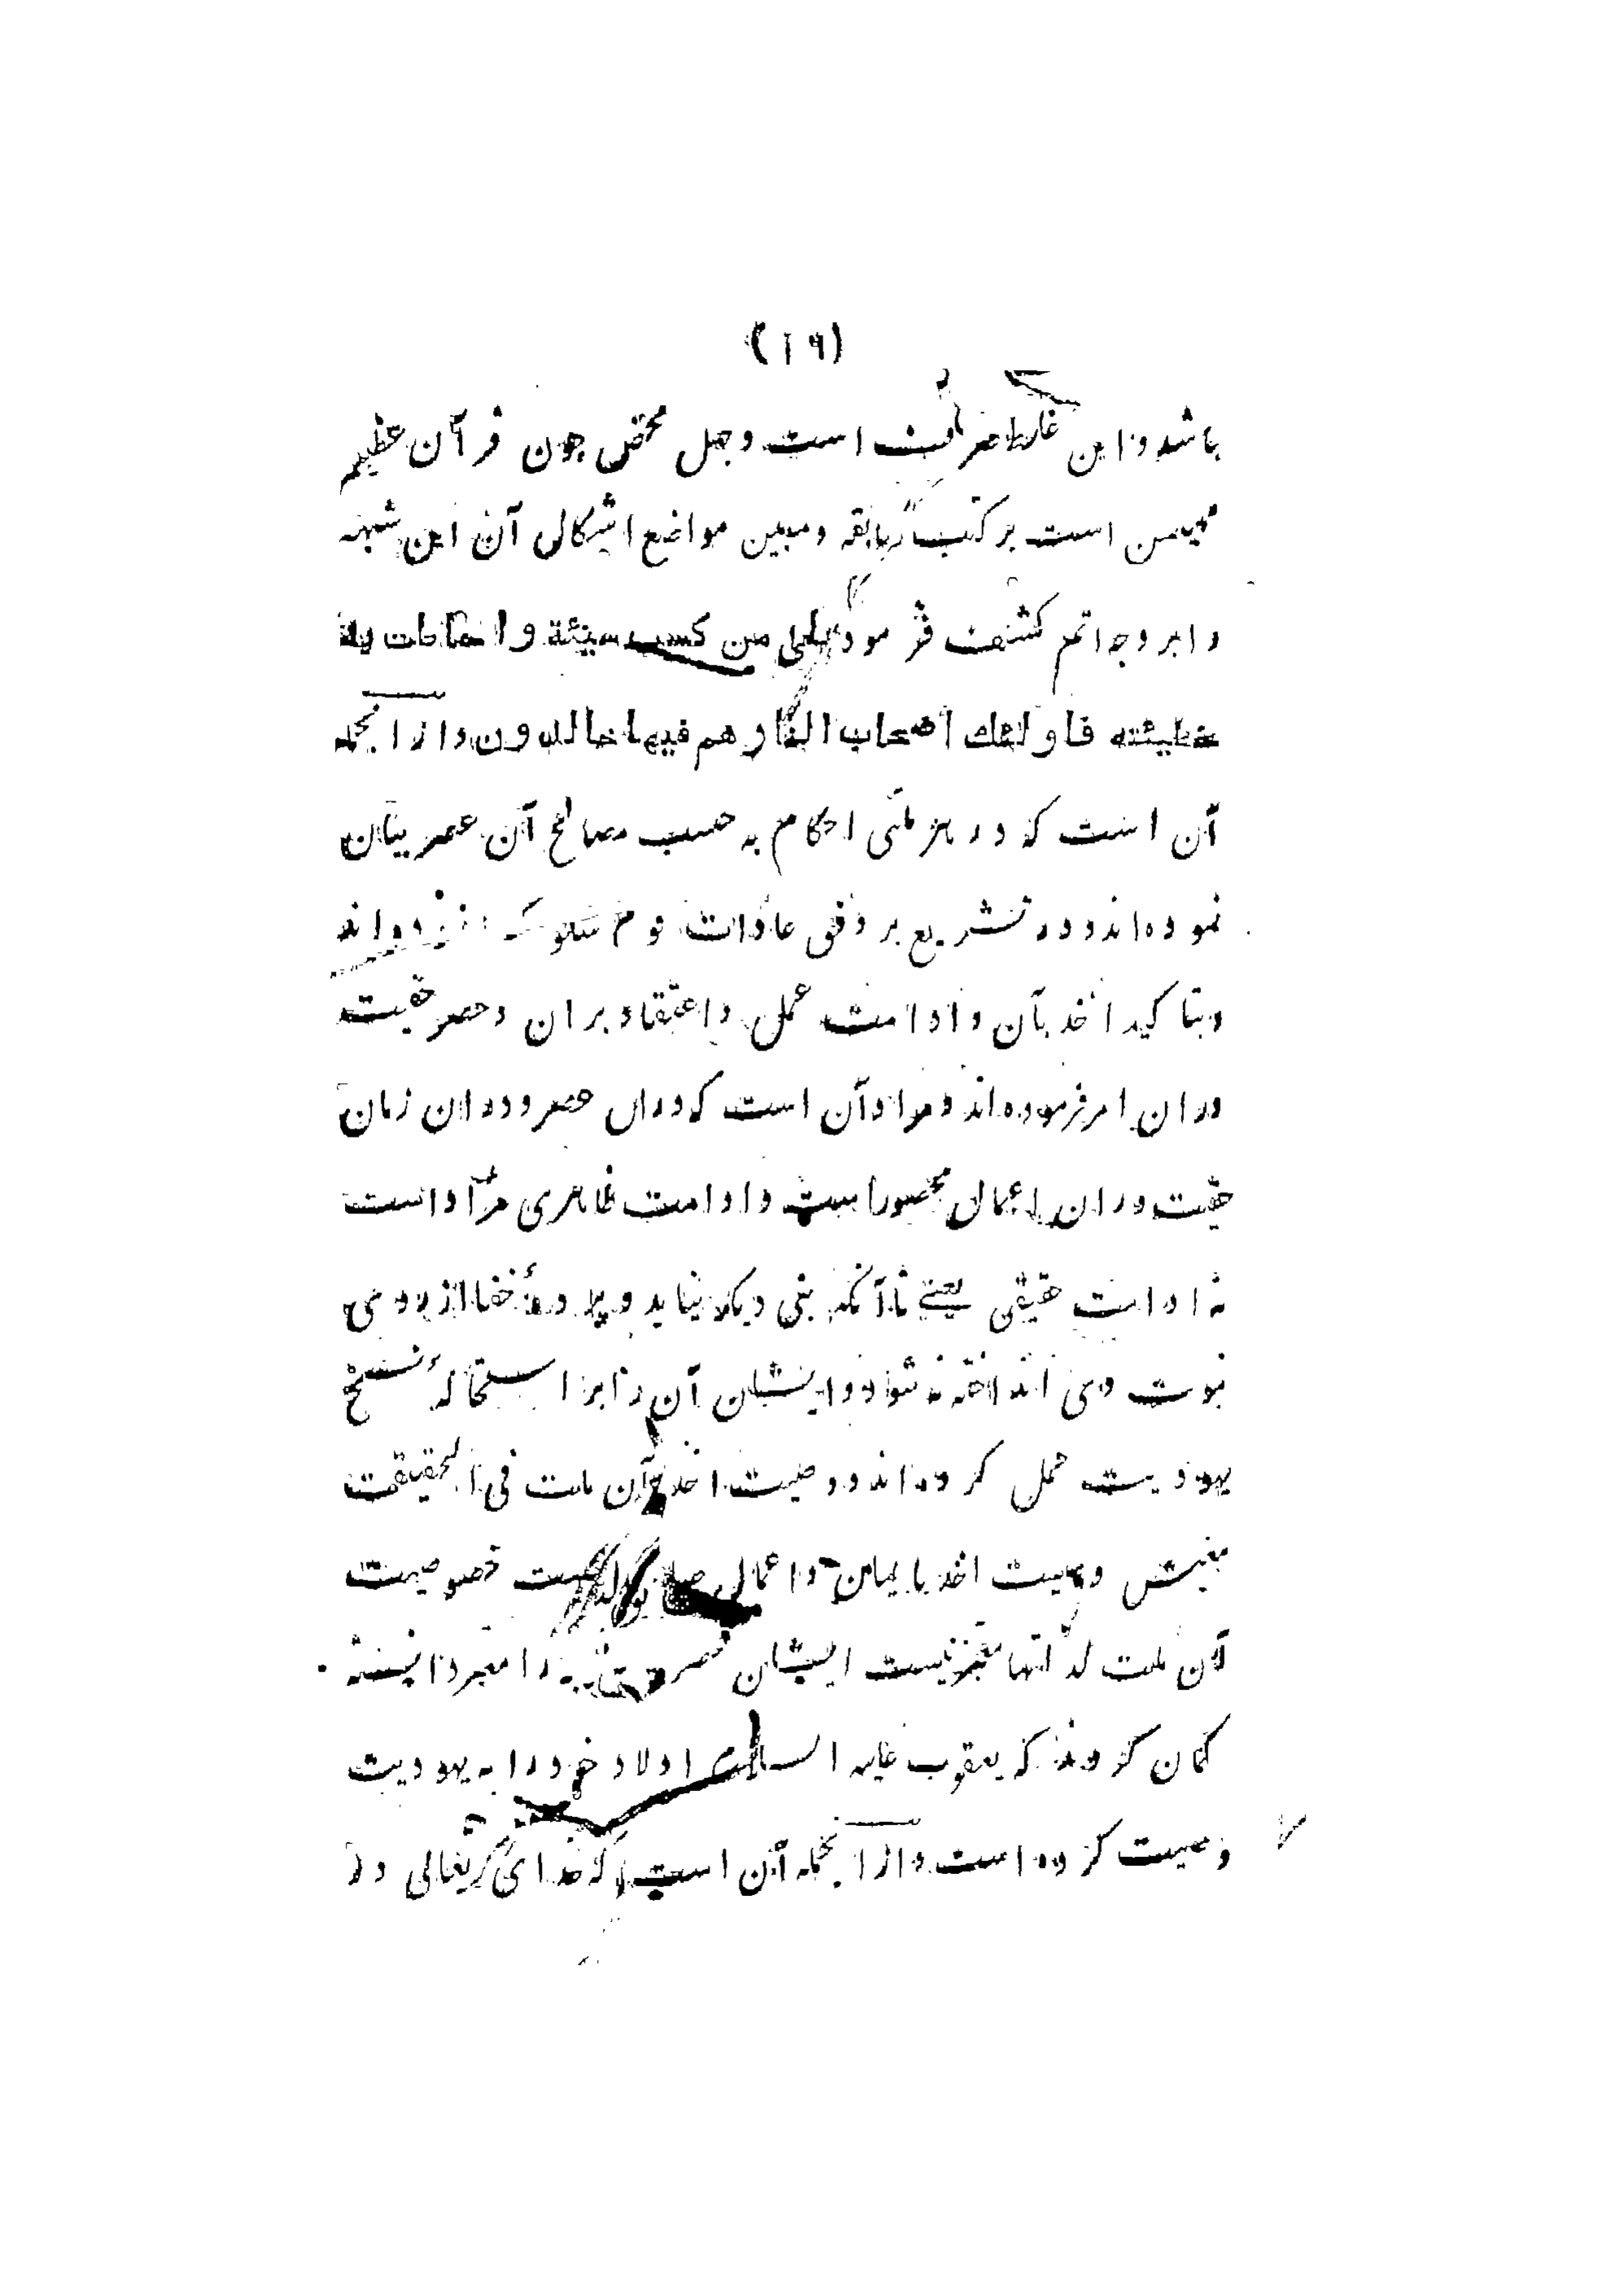 (۱۹)
باشد و این غلط صرف است و جهل محض چون قرآن عظیم
مهیمن است بر کتب سابقه و مبین مواضع اشکال آن این شبهه
را بر وجه اتم کشف فرمود بلی من کسب سیئة و احاطت به
خطیئته فاولئك اصحاب النار هم فیها خالدون و از آنجمله
آن است که در هر ملتی احکام به حسب مصالح آن عصر بیان
نموده‌اند و در تشریع بر وفق عادات قوم سلوک
و بتاکید اخذ بآن و ادامت عمل و اعتقاد بر ان و حصر حقیت
در ان امر فرموده‌اند و مراد آن است که دران عصر و در ان زمان
حقیت در ان اعمال محصور است و ادامت ظاهری مراد است
نه ادامت حقیقی یعنے تا آنکه نبی دیگر نیاید و پردهٔ خفا از روی
نبوت وی انداخته نشود و ایشان آن را بر استحالهٔ نسخ
یهودیت حمل کرده‌اند و وصیت اخذ بآن ملت فی الحقیقت
بمعنیش وصیت اخذ بایمان و اعمال است خصوصیت
آن ملت لذاتها معتبر نیست ایشان خصوصیت را معتبر دانسته
گمان کردند که یعقوب علیه السلام اولاد خود را به یهودیت
وصیت کرده است و از آنجمله آن است که خدای تعالی در